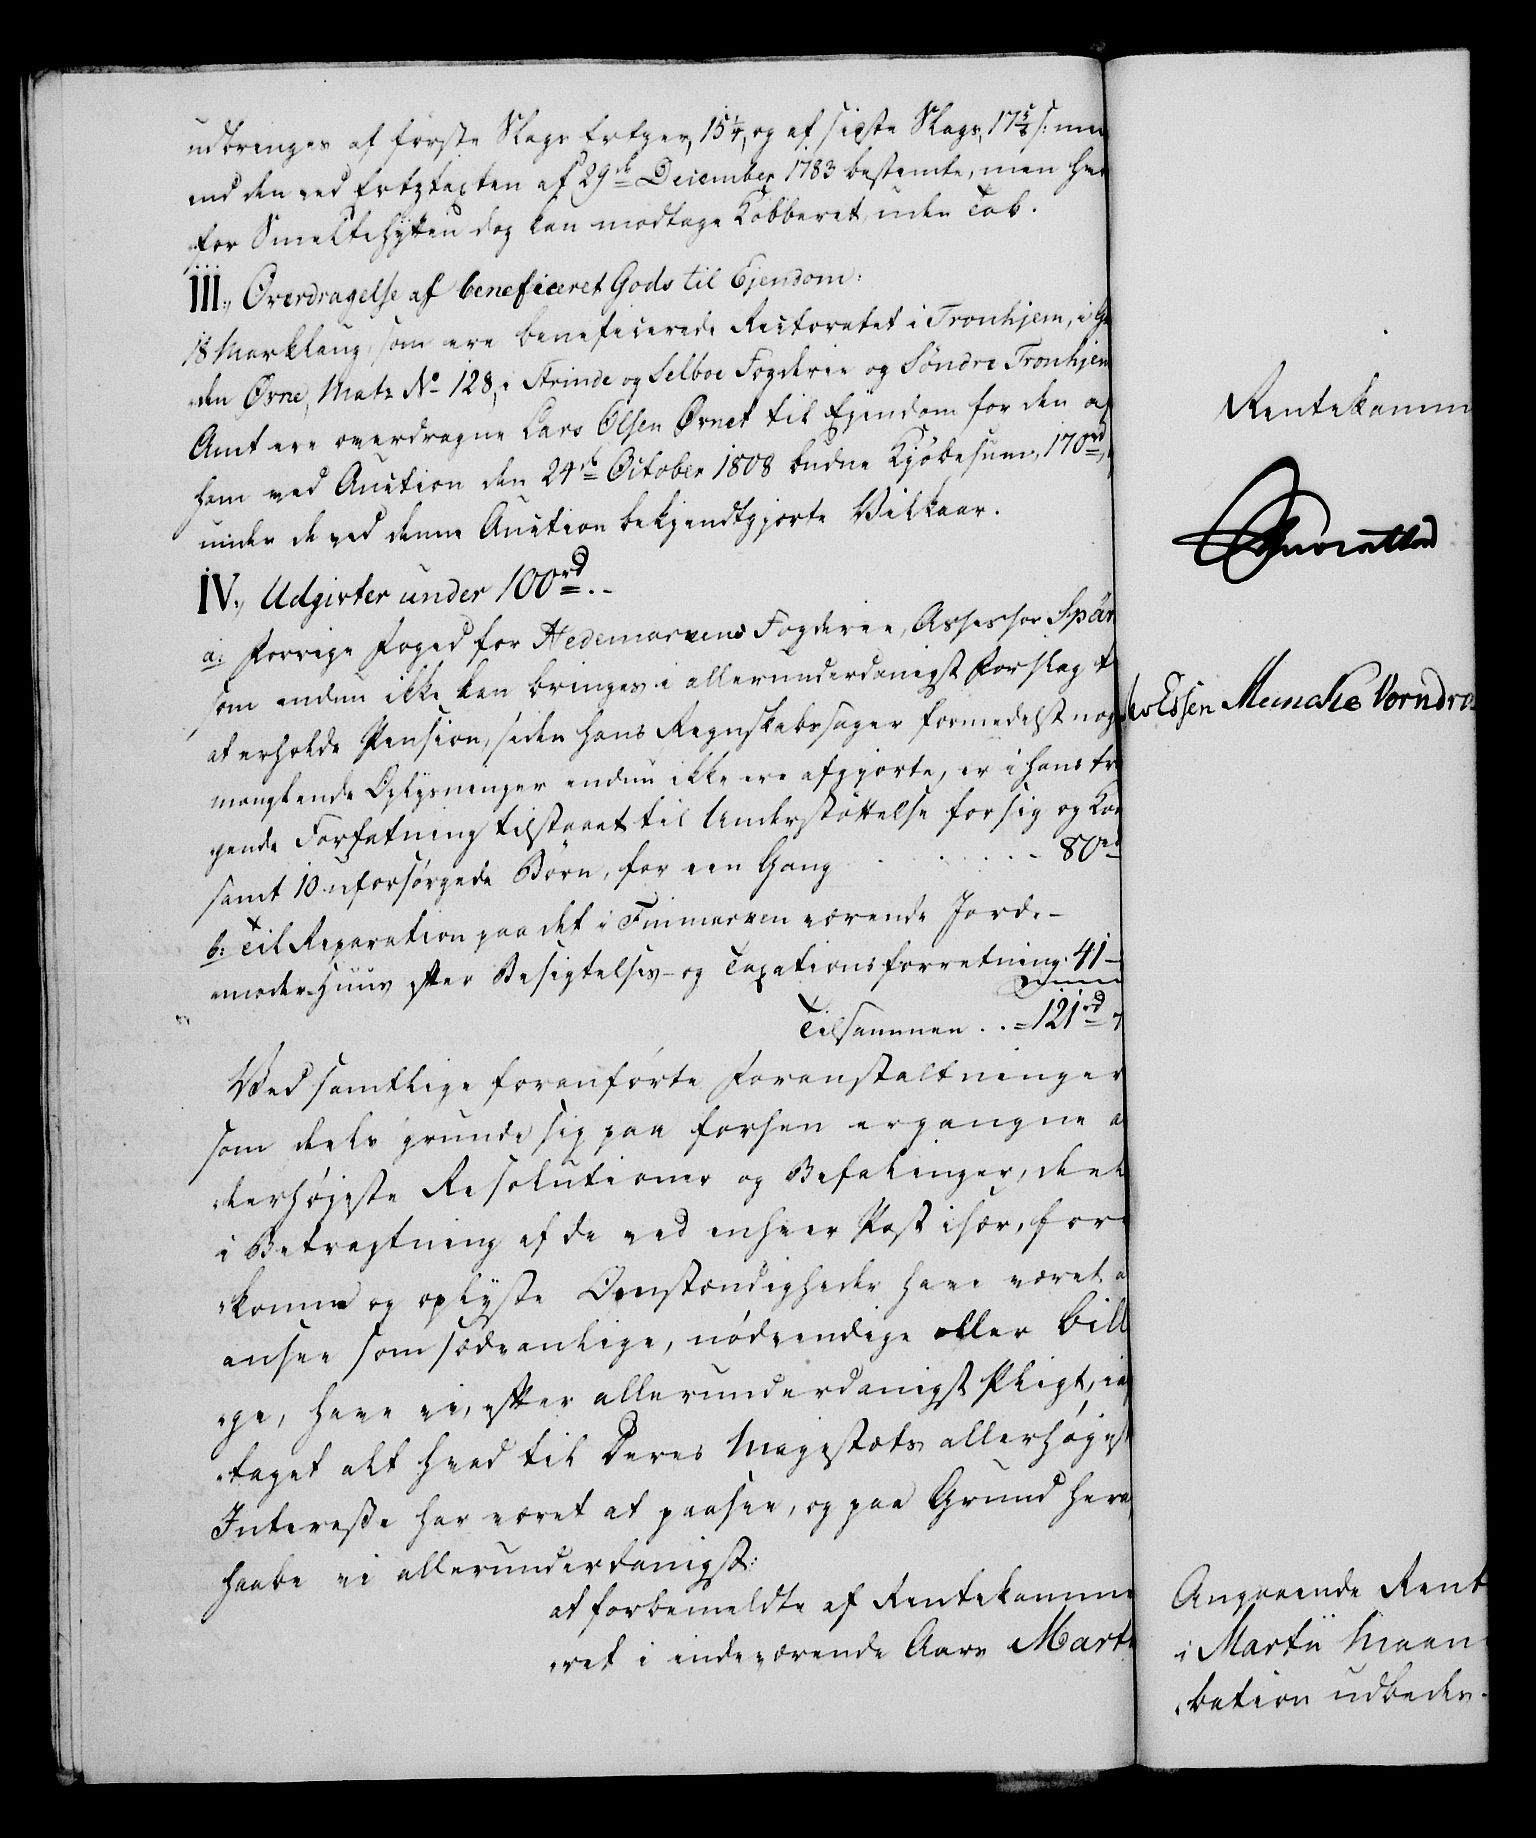 udbringes af første Slags Ertzer, 15¼, og af sidste Slags, 17⅝ s: mer
end den ved Ertztaxten af 29de December 1783 bestemte, men hvor
for Smeltehytten dog kan modtage Kobberet uden Tab.
III., Overdragelse af beneficeret Gods til Ejendom:
18 Marklaug, som ere beneficerede Rectoratet i Tronhjem, i Ga
den Ørne, Matr No 128, i Strinde og Selboe Fogderie og Søndre Tronhjem
Amt ere overdragne Lars Olsen Ørnet til Ejendom for den af
ham ved Auction den 24de October 1808 budne Kjøbesum, 170rd,
under de ved denne Auction bekjendtgjorte Vilkaar.
IV., Udgivter under 100rd. -
a: Forrige Foged for Hedemarkens Fogderie, Assessor Spär
som endnu ikke kan bringes i allerunderdanigst Forslag t
at erholde Pension, siden hans Regnskabssager formedelst nog
manglende Oplysninger endnu ikke ere afgjorte, er i hans tr
gende Forfatning tilstaaet til Understøttelse for sig og Kon
samt 10 uforsørgede Børn, for een Gang . . . . . - 80rd
b: Til Reparation paa det i Finmarken værende Jorde-
moder-Huus efter Besigtelses- og Taxationsforretning. 41 -
Tilsammen . . = 121rd
Ved samtlige foranførte Foranstaltninger
som deels grunde sig paa forhen ergangne a
lerhøjeste Resolutioner og Befalinger, deels
i Betragtning af de ved enhver Post især, fore
komne og oplyste Omstændigheder have været a
ansee som sædvanlige, nødvendige eller bill
ge, have vi, efter allerunderdanigst Pligt, iag
taget alt hvad til Deres Majestæts allerhøjest
Interesse har været at paasee, og paa Grund heraf
haabe vi allerunderdanigst:
at forbemeldte af Rentekamme
ret i indeværende Aars Marti
Rentekamm
Essen Meincke Vorndra
Angaaende Rent
i Martii Maan
bation udbedes.